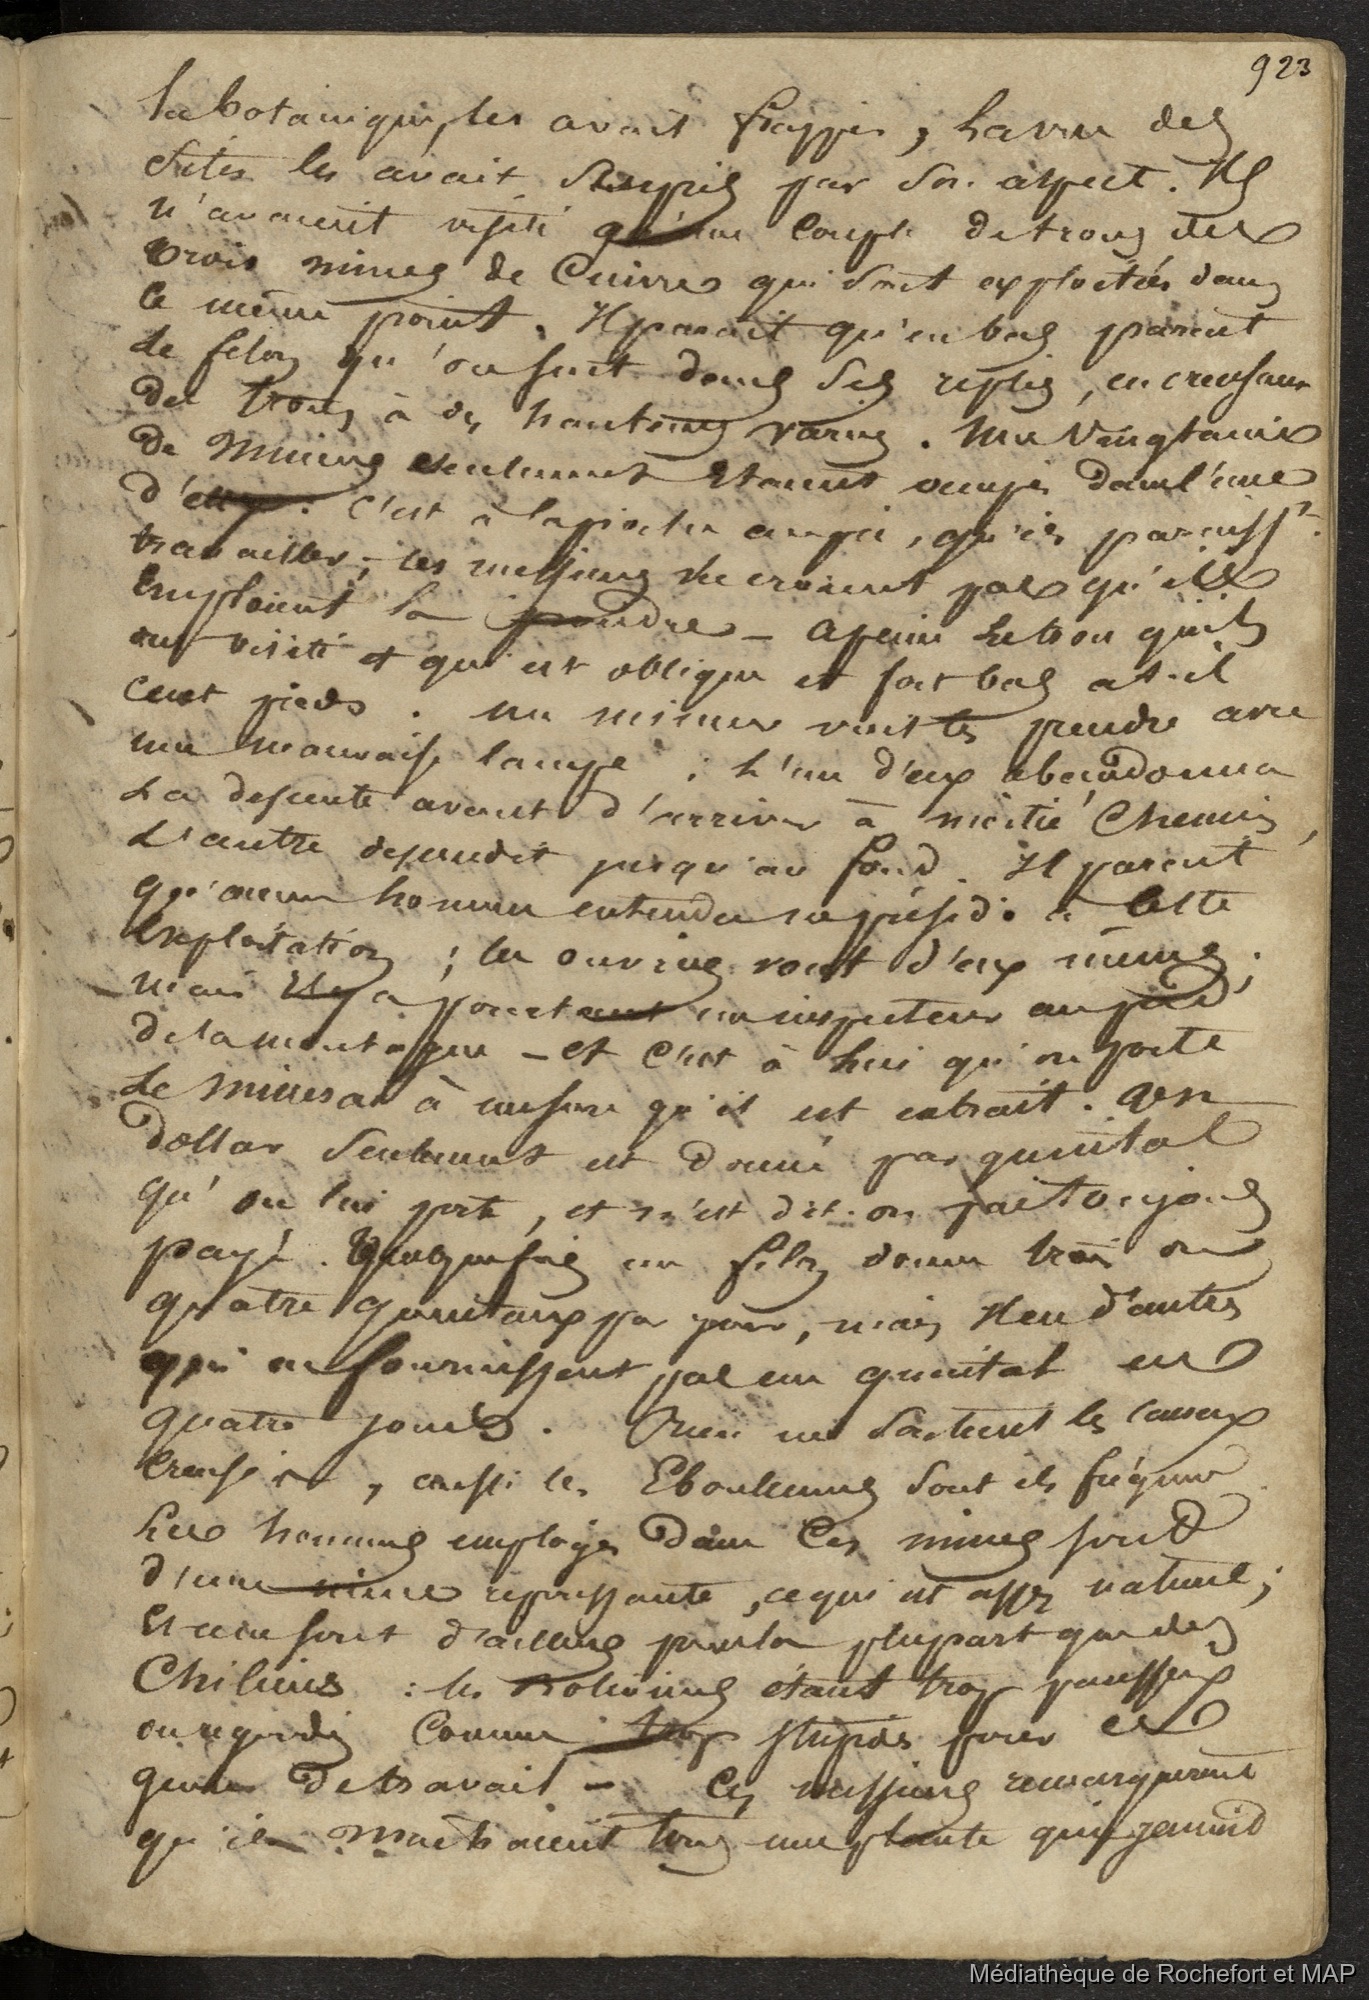 923
la botanique, les avait frappés, la vue des
sites les avait surpris par son aspect. Ils
n'avaient visité qu'une couple de trous des
trois mines de Cuivre qui sont exploitées dans
le même point. Il parait qu'en bas parait
le filon qu'on suit dans ses replis, en creusant
des trous à des hauteurs varies. Une Vingtaine
de Mineurs seulement etaient occupés dans l'une
d'elles. C'est à la pioche qu'ils paroiss.t
travailler; ces messieurs ne croient pas qu'ils
emploient la poudre - a peine le trou qu'ils
ont visité et qui est oblique et fort bas a t-il
cent pieds. un mineur vint les prendre avec
une mauvaise lampe; L'un d'eux abandonna
La descente avant d'arriver à moitié Chemin,
L'autre descendit jusqu'au fond. Il parait
qu'aucun homme entendu ne préside à cette
exploitation; les ouvriers vont d'eux mêmes;
mais il y a pourtant un inspecteur au pied
de la montagne - et C'est à lui qu'on porte
le minerai à mesure qu'il est extrait. Un
dollar seulement est donné par quintal
qu'on lui porte, et n'est dit-on pas toujours
payé. Quelquefois un filon donne trois ou
quatre quintaux par jour, mais Il en d'autres
qui ne fournissent pas un quintal en
quatre jours. Rien ne soutient les canaux
creusés, aussi les Eboulemens sont ils fréquens
Les hommes employés dans Ces mines sont
d'une mine repoussante, ce qui est assez naturel;
Et ce ne sont d'ailleurs pour la plupart que des
Chiliens: les Boliviens étant trop paresseux
ou regardés Comme trop stupides pour ce
genre de travail - Ces messieurs remarquerent
qu'ils machaient tous une plante qui jaunid